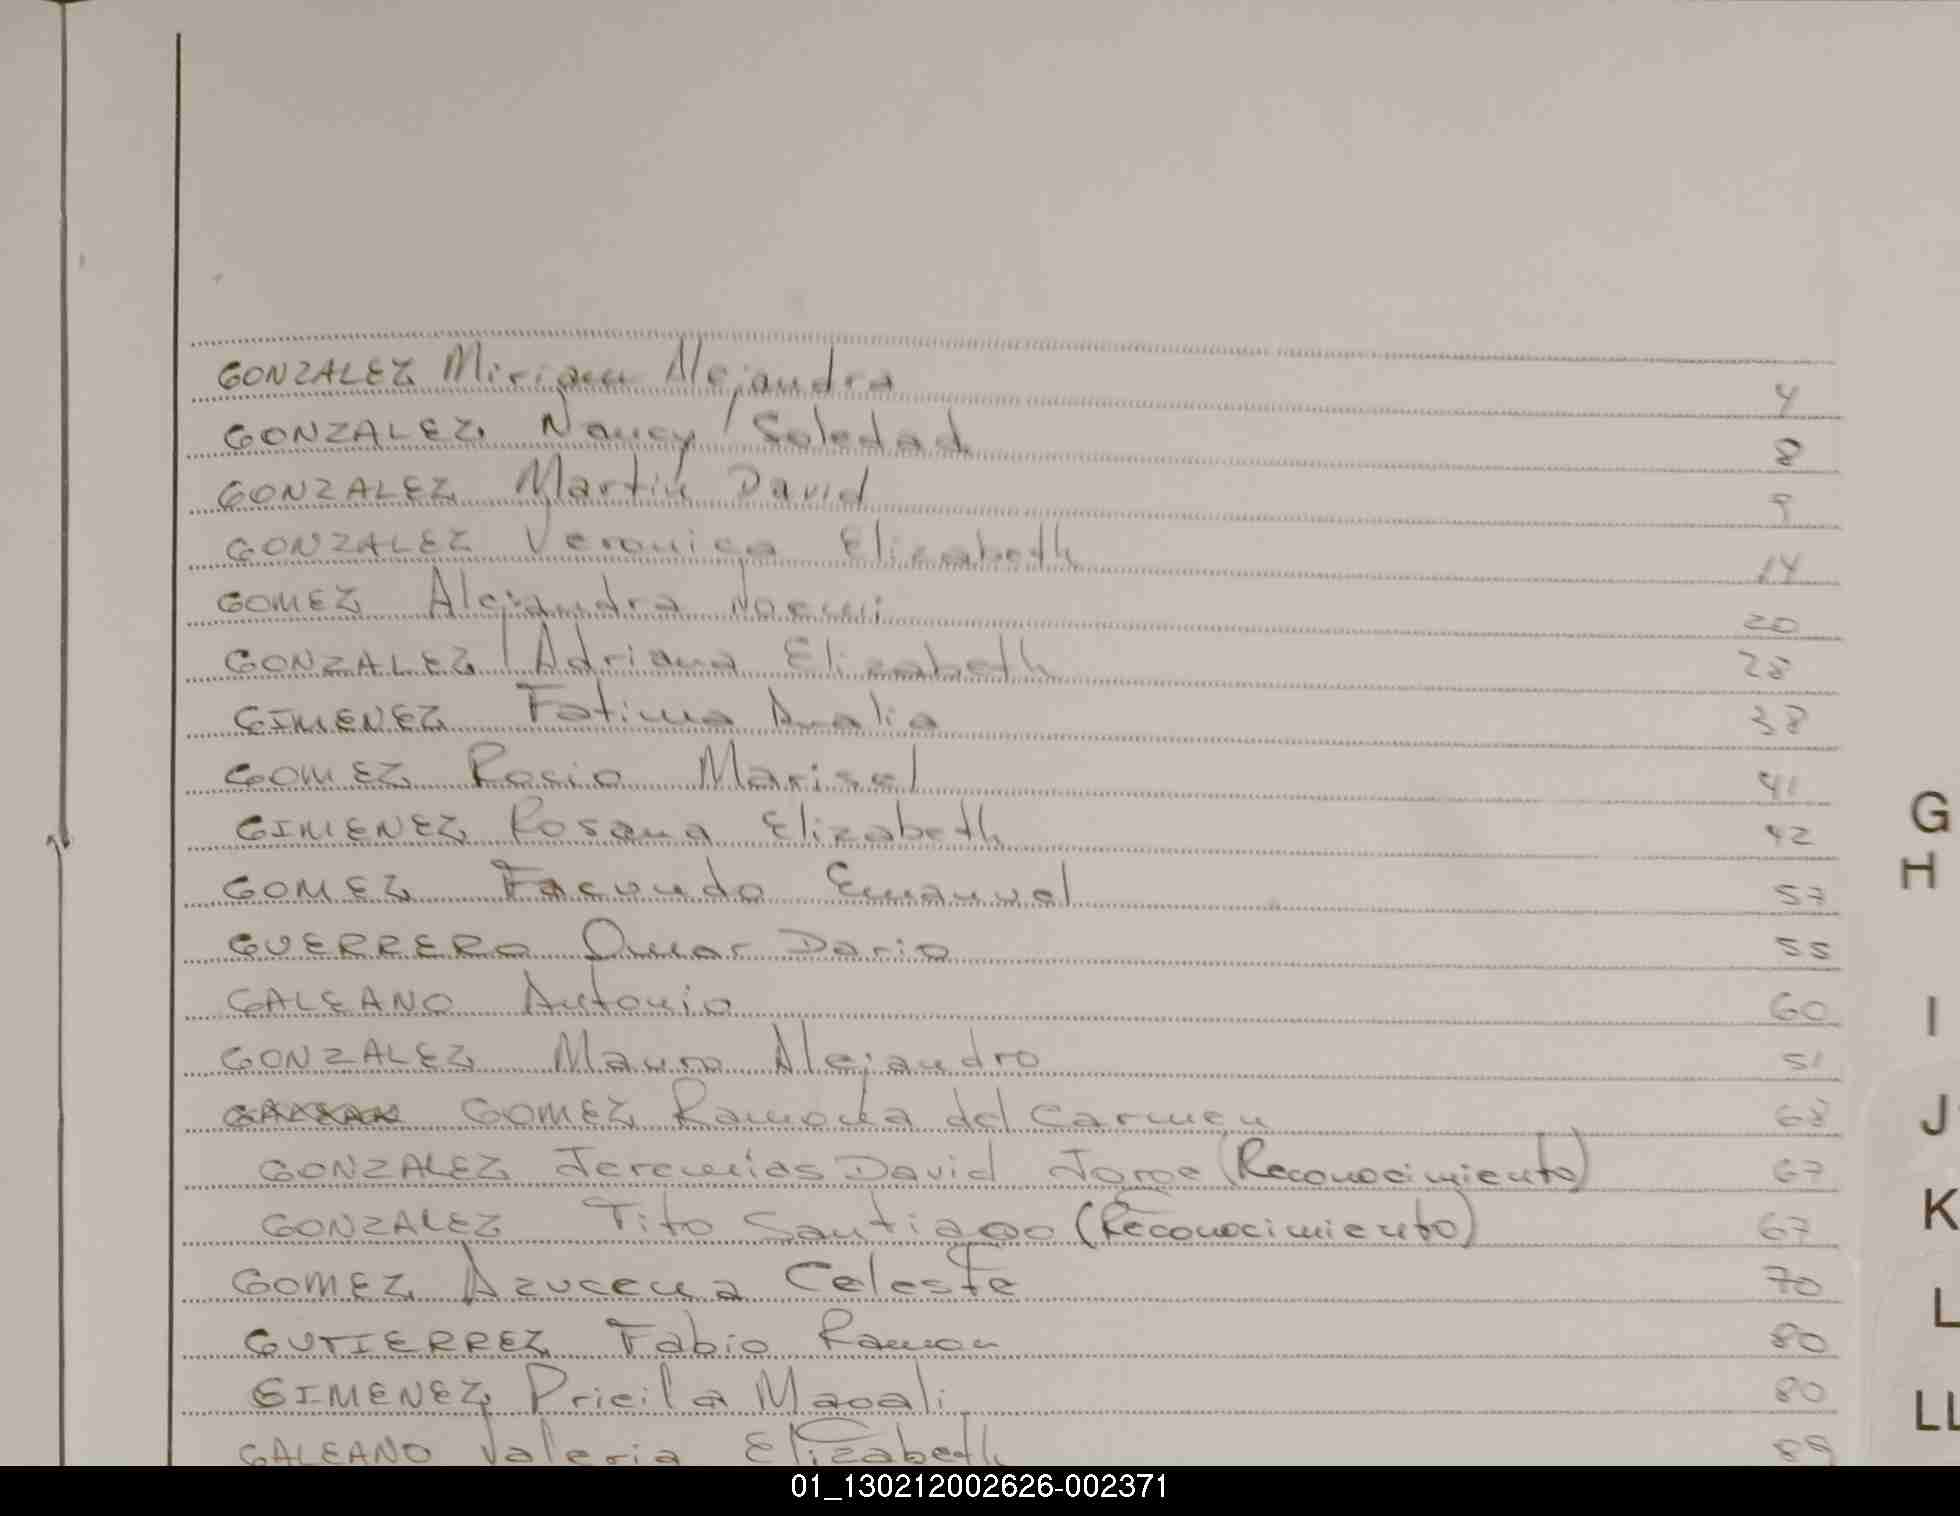 GONZALEZ Miriam Alejandra 4
GONZALEZ Nancy Soledad 8
GONZALEZ Martin David 9
GONZALEZ Veronica Elizabeth 14
GOMEZ Alejandra Noemi 20
GONZALEZ Adriana Elizabeth 28
GIMENEZ Fatima Analia 38
GOMEZ Rocio Marisel 41
GIMENEZ Rosana Elizabeth 42
GOMEZ Facundo Emanuel 57
GUERRERO Omar Dario 55
GALEANO Antonio 60
GONZALEZ Mauro Alejandro 51
GOMEZ Ramona del Carmen 68
GONZALEZ Jeremias David Jorge (Reconocimiento) 67
GONZALEZ Tito Santiago (Reconocimiento) 67
GOMEZ Azucena Celeste 70
GUTIERREZ Fabio Ramon 80
GIMENEZ Pricila Magali 80
GALEANO Valeria Elizabeth 89
G
H
I
J
K
L
LL
01_130212002626-002371